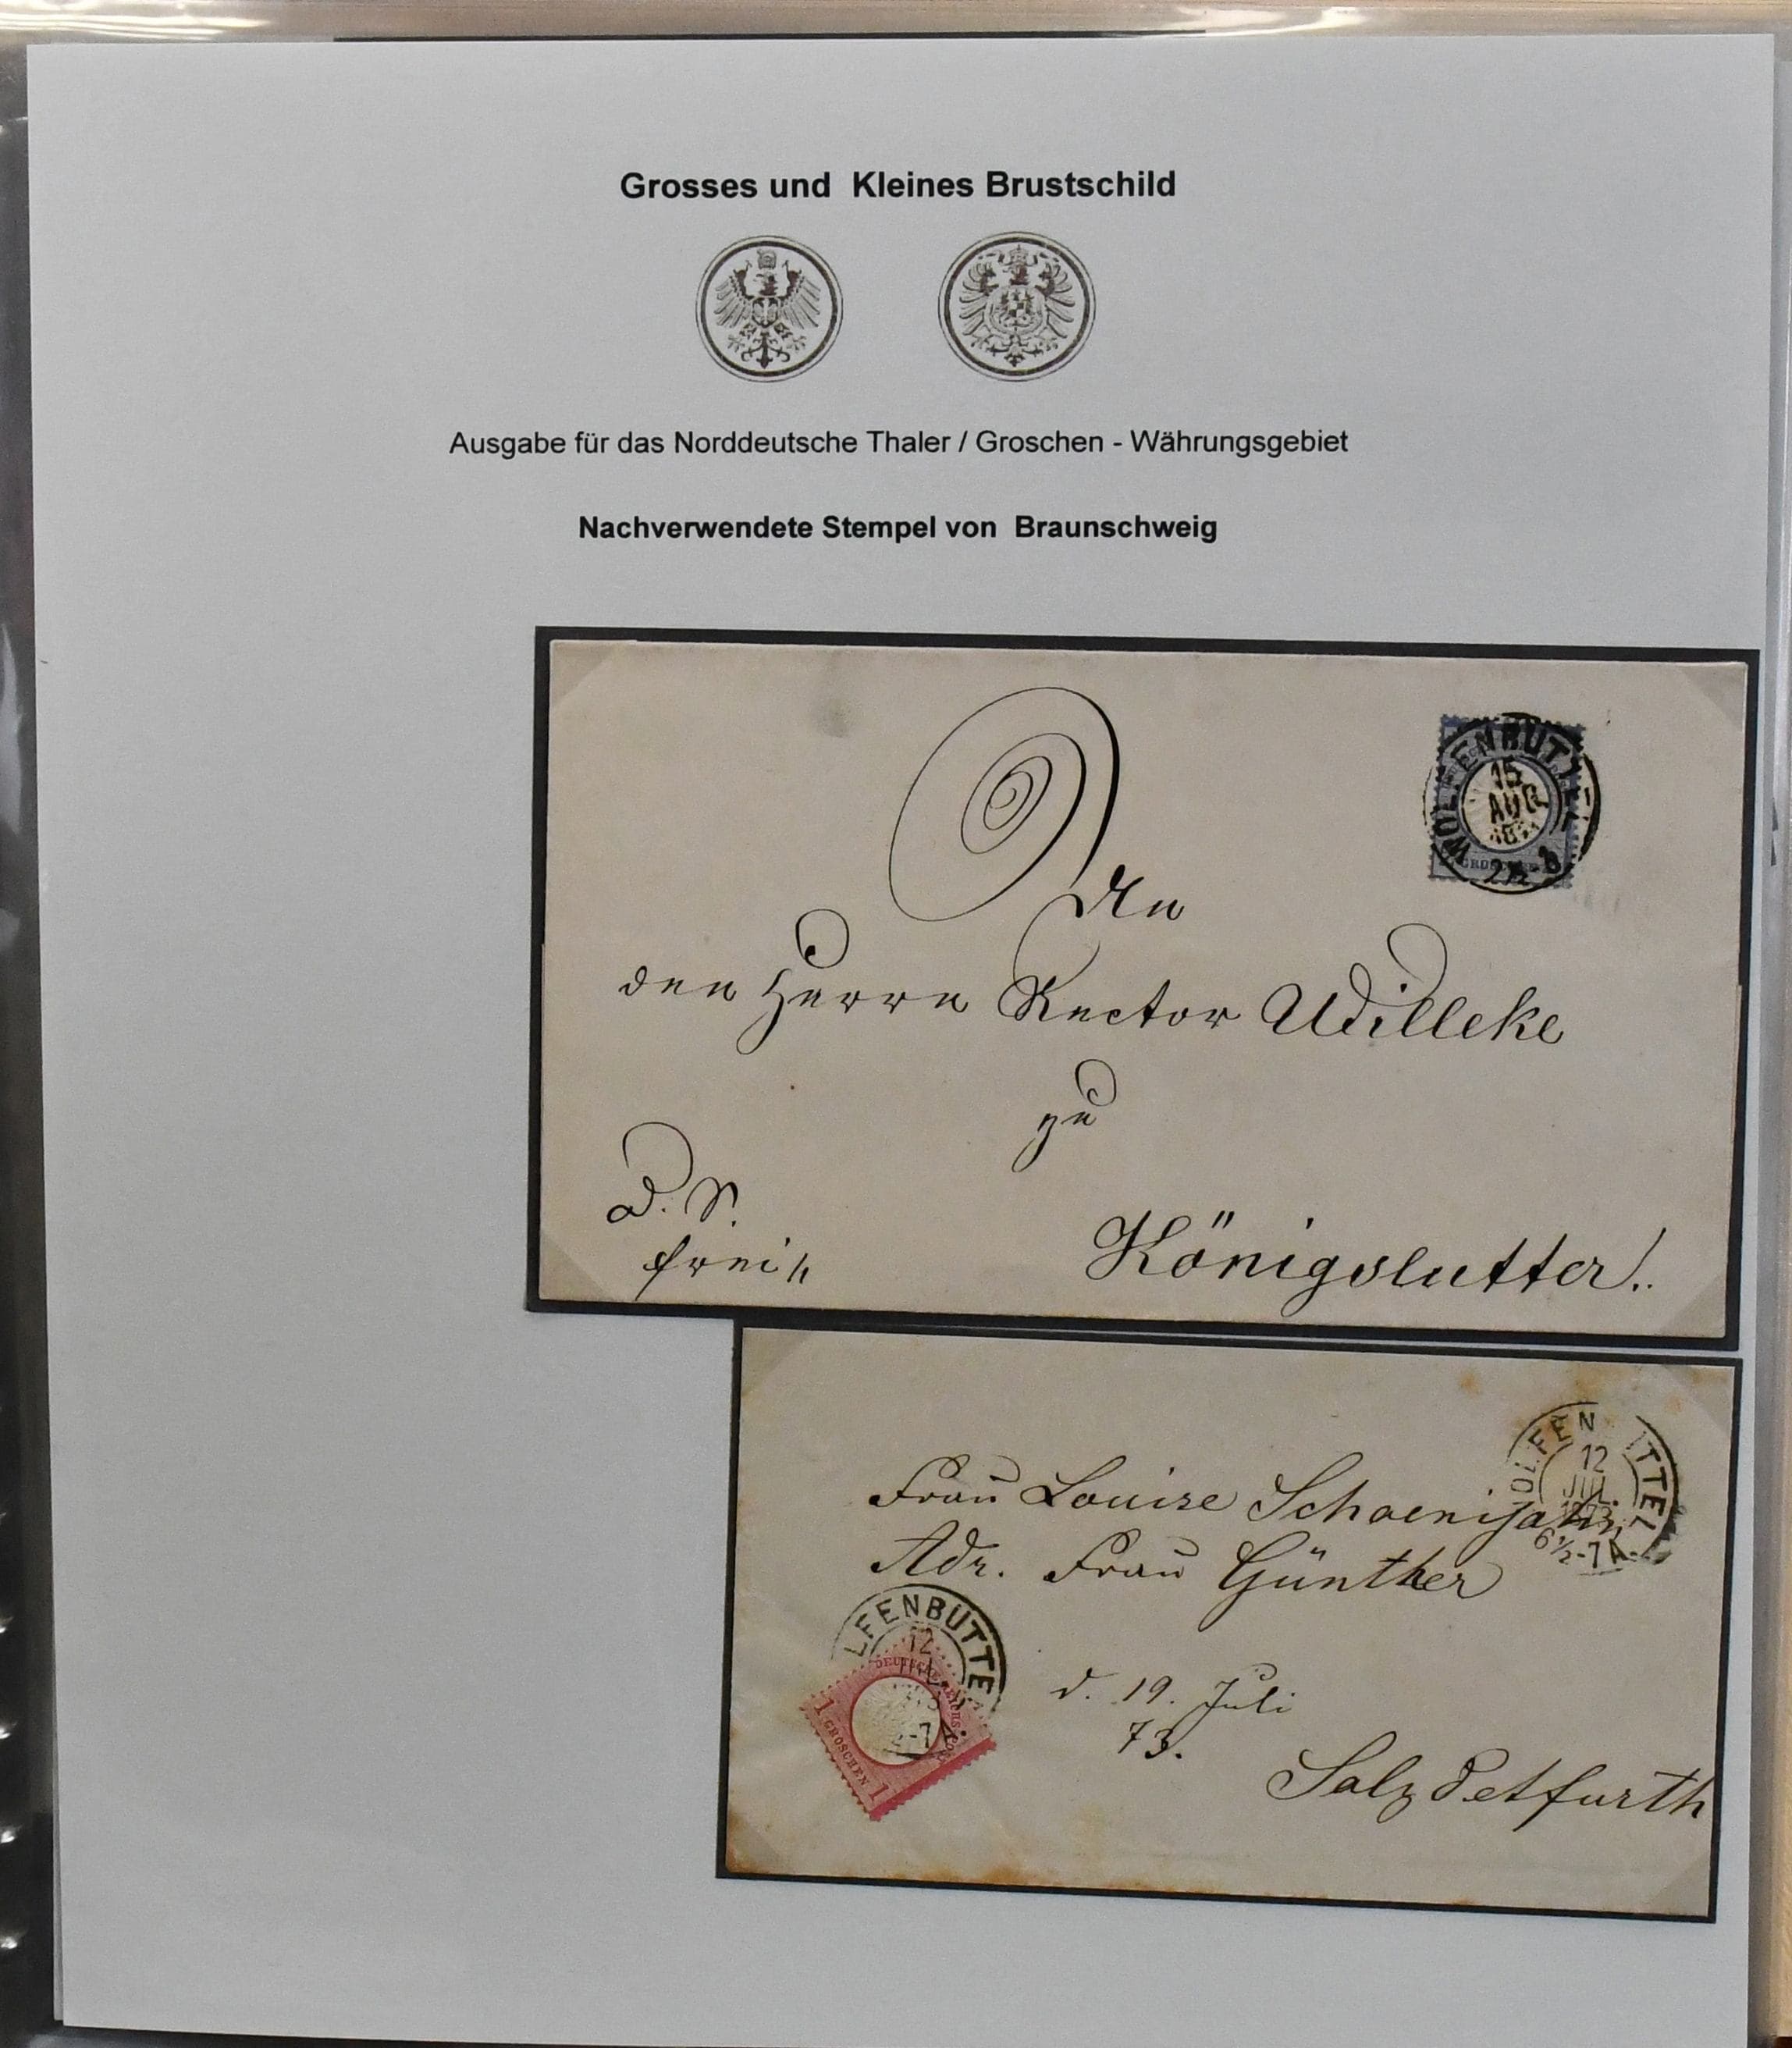 Grosses und Kleines Brustschild
Ausgabe für das Norddeutsche Thaler / Groschen - Währungsgebiet
Nachverwendete Stempel von Braunschweig
WOLFENBÜTTEL
15
AUG
GROSCHEN
An
den Herrn Rector Willeke
zu
D. S.
frei
Königslutter!
WOLFENBÜTTEL
12
JUL
1873
6½-7A.
Frau Louise
Adr. Frau Günther
LFENBÜTTE
12
DEUTSCHE REICHS-POST
1 GROSCHEN 1
d. 19. Juli
73.
Salzdetfurth